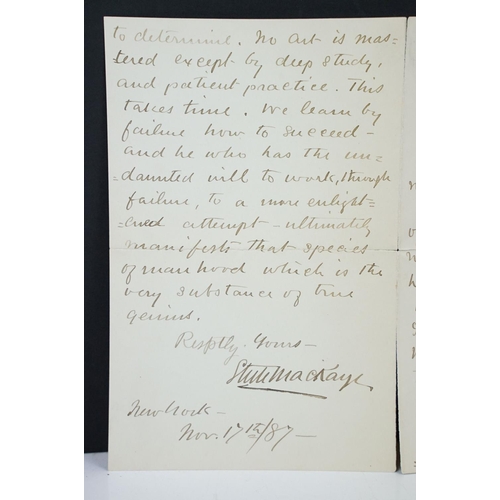 to determine. No art is mas=
tered except by deep study,
and patient practice. This
takes time. We learn by
failure how to succeed -
and he who has the un-
=daunted will to work, through
failure, to a more enlight=
=ened attempt - ultimately
manifests that species
of manhood which is the
very substance of true
genius.
Respflly. Yours -
Steele MacKaye
New York -
Nov. 17th/87 -